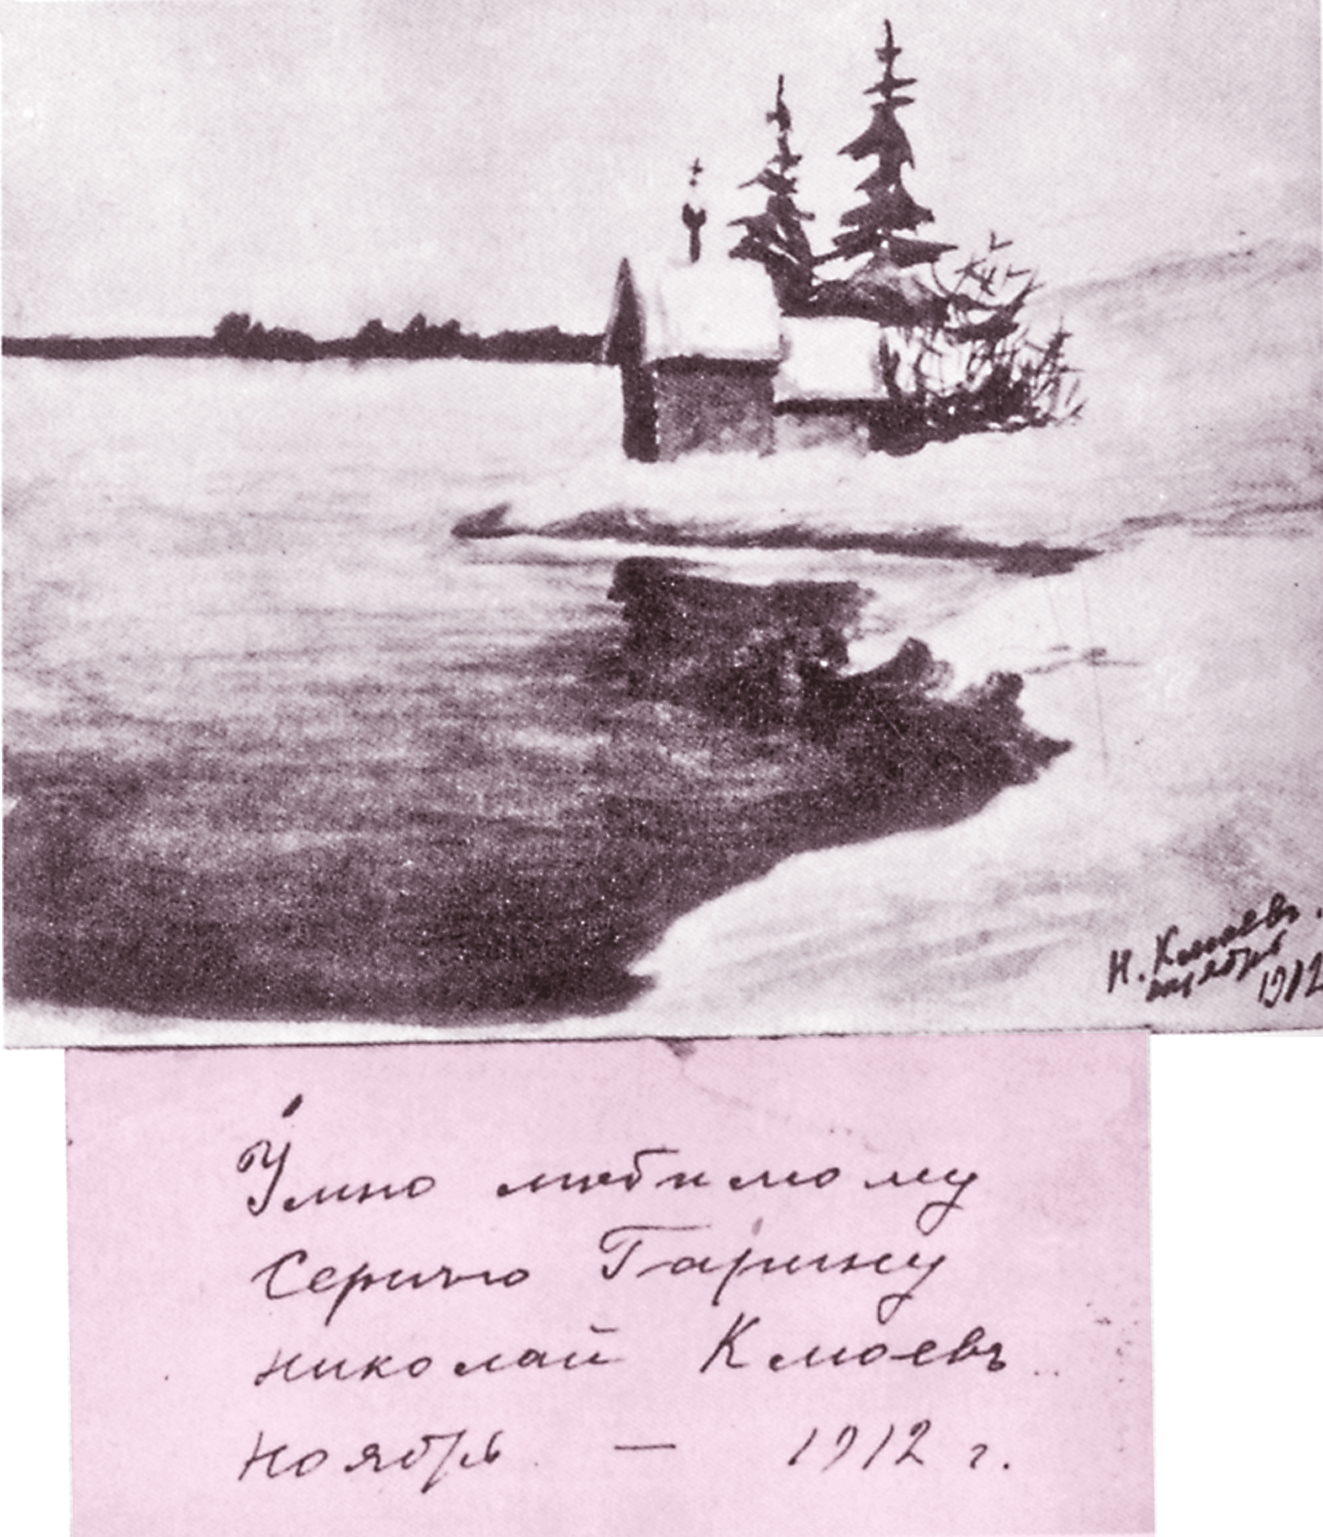 Н. Клюевъ.
ноябрь
1912
Умно любимому
Серичю Гарину
николай Клюевъ
ноябрь — 1912 г.